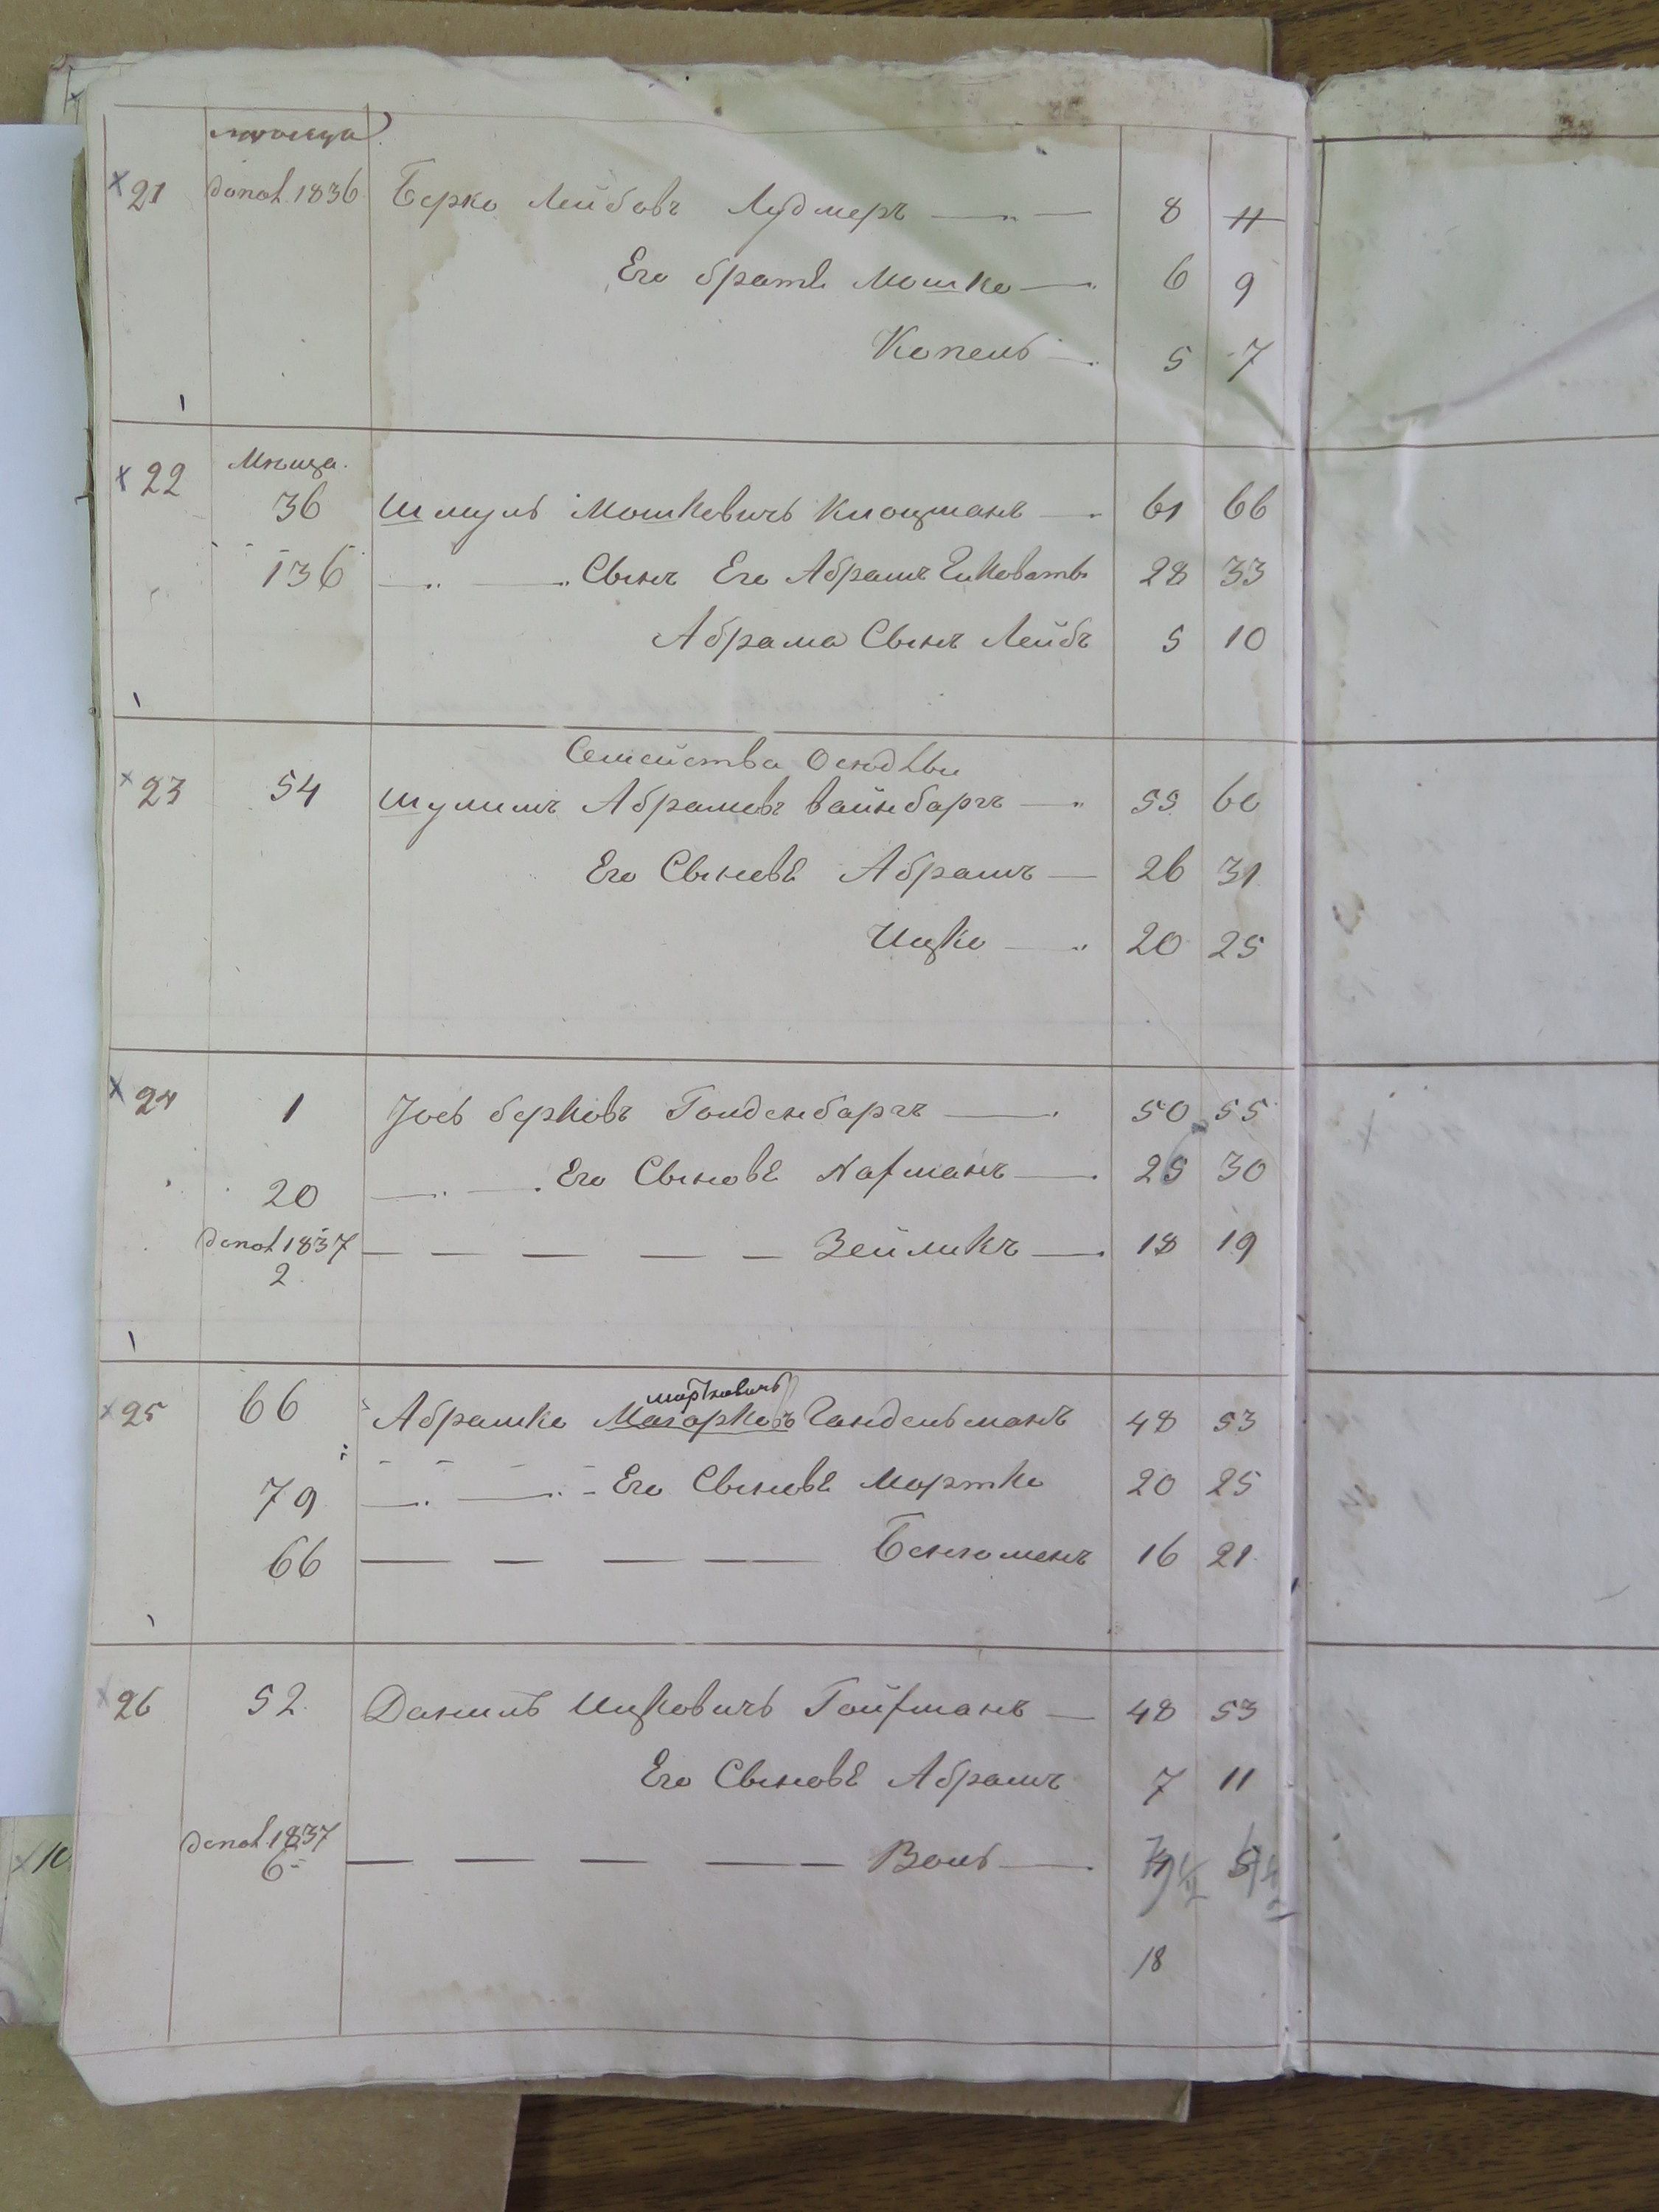 х 21 допол. 1836 Берко Лейбовъ Лудмеръ 8 11
Его братъ Мошко 6 9
Копель 5 7
1
Мѣсца.
х 22 36 Шмуль Мошковичъ Клоцманъ 61 66
136 Сынъ Его Абрамъ 28 33
Абрама Сынъ Лейбъ 5 10
1
Семейства
х 23 54 Шулимъ Абрамовъ Вайнбаргъ 55 60
Его Сыновѣ Абрамъ 26 31
Ицко 20 25
х 24 1 Іось берковъ Голденбаргъ 50 55
20 Его Сыновѣ Нафманъ 25 30
допол 1837 Зейликъ 18 19
2
1
Мортковичъ
х 25 66 Абрамко Гандельманъ 48 53
79 Его Сыновѣ Мортко 20 25
66 Бенюменъ 16 21
1
х 26 52 Даниль Ицковичъ Гойфманъ 48 53
Его Сыновѣ Абрамъ 7 11
допол. 1837 Воль
6
18
х 10